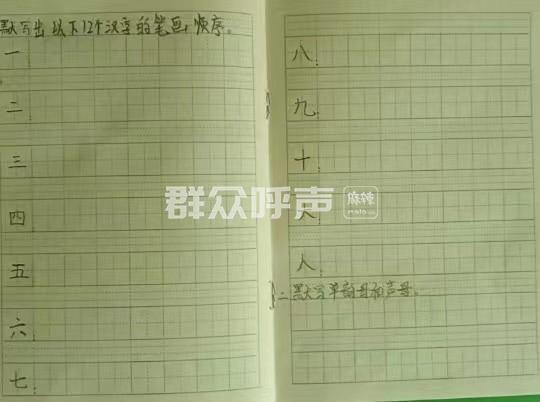 默写出以下12个汉字的笔画顺序。
一
二
三
四
五
六
七
八
九
十
人
二默写单韵母和声母。
群众呼声
麻辣